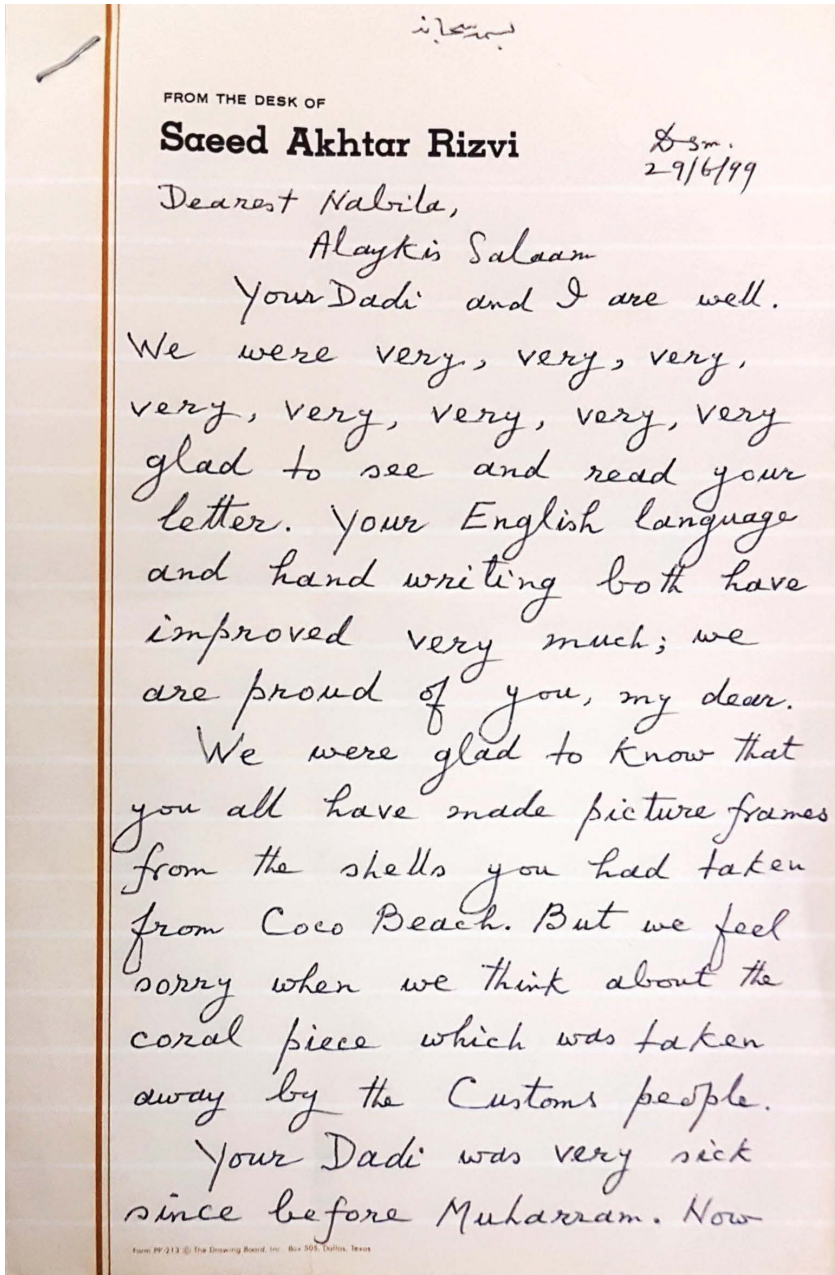 بسمہ سبحانہ
FROM THE DESK OF
Saeed Akhtar Rizvi
Dsm.
29/6/99
Dearest Nabila,
Alaykis Salaam
Your Dadi and I are well.
We were very, very, very,
very, very, very, very, very
glad to see and read your
letter. Your English language
and hand writing both have
improved very much; we
are proud of you, my dear.
We were glad to know that
you all have made picture frames
from the shells you had taken
from Coco Beach. But we feel
sorry when we think about the
coral piece which was taken
away by the Customs people.
Your Dadi was very sick
since before Muharram. Now
Form PF-213 © The Drawing Board, Inc. Box 505, Dallas, Texas